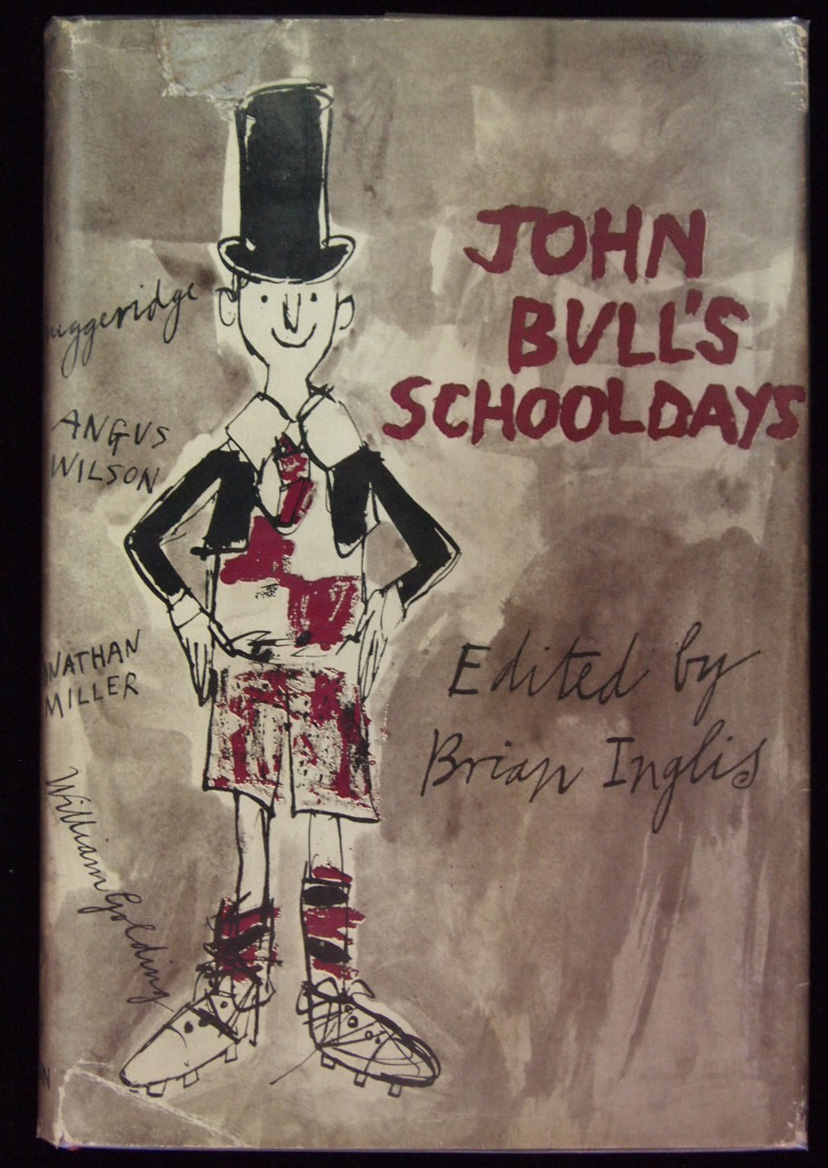 JOHN
BULL'S
SCHOOLDAYS
uggeridge
ANGUS
WILSON
NATHAN
MILLER
William Golding
Edited by
Brian Inglis
N